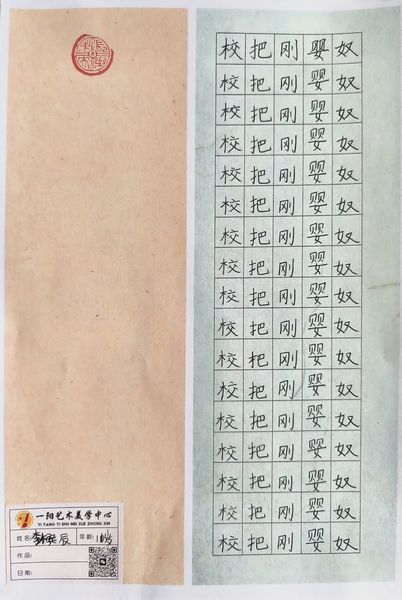 校把刚婴奴
校把刚婴奴
校把刚婴奴
校把刚婴奴
校把刚婴奴
校把刚婴奴
校把刚婴奴
校把刚婴奴
校把刚婴奴
校把刚婴奴
校把刚婴奴
校把刚婴奴
校把刚婴奴
校把刚婴奴
校把刚婴奴
校把刚婴奴
校把刚婴奴
一阳艺术美学中心
YI YANG YI SHU MEI XUE ZHONG XIN
姓名: 辰 年龄:
作品:
日期: